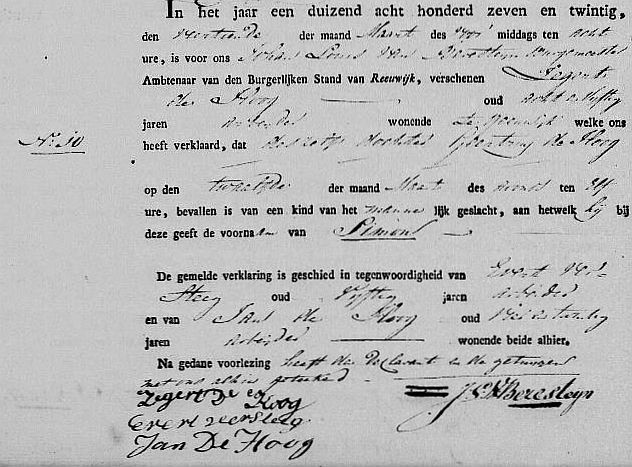 In het jaar een duizend acht honderd zeven en twintig,
den veertiende der maand Maart des voor middags ten acht
ure, is voor ons Johan Louis van Beresteyn Burgemeester
Ambtenaar van den Burgerlijken Stand van Reeuwijk, verschenen Zegert
de Hoog oud acht en vyftig
jaren arbeider wonende te Reeuwijk welke ons
No 10
heeft verklaard, dat deszelfs dochter Geertruy de Hoog
op den twaalfde der maand Maart des avonds ten Elf
ure, bevallen is van een kind van het manne lijk geslacht, aan hetwelk hij bij
deze geeft de voornaam van Simon
De gemelde verklaring is geschied in tegenwoordigheid van Evert Ver-
steeg oud vyftig jaren arbeider
en van Jan de Hoog oud en twintig
jaren arbeider wonende beide alhier.
Na gedane voorlezing heeft de declarant en de getuigen
met ons alhier getekend
Zegert De Hoog
Evert veersteeg
Jan De Hoog
J L V Beresteyn